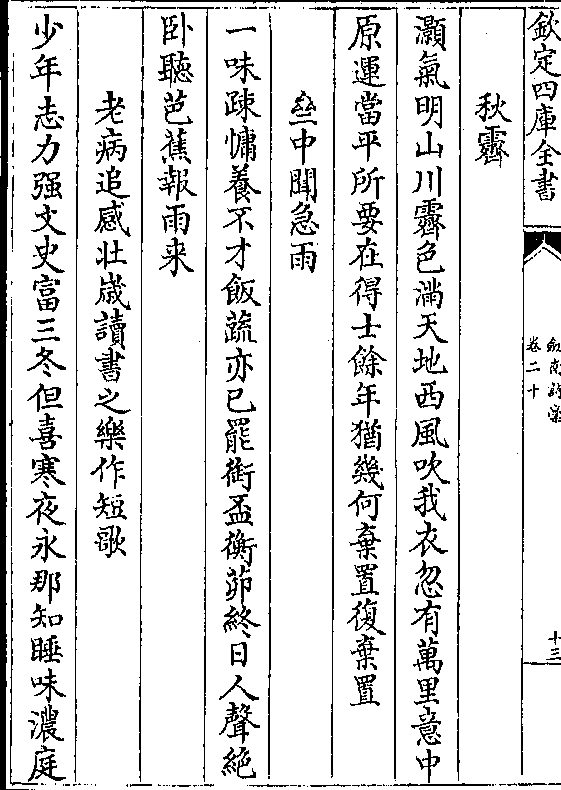 欽定四庫全書
劍南詩稾
卷二十
十三
秋霽
灝氣明山川霽色滿天地西風吹我衣忽有萬里意中
原運當平所要在得士餘年猶幾何棄置復棄置
中聞急雨
一味疎慵養不才飯蔬亦已罷銜盃衡茆終日人聲絶
卧聽芭蕉報雨来
老病追感壯歳讀書之樂作短歌
少年志力强文史富三冬但喜寒夜永那知睡味濃庭